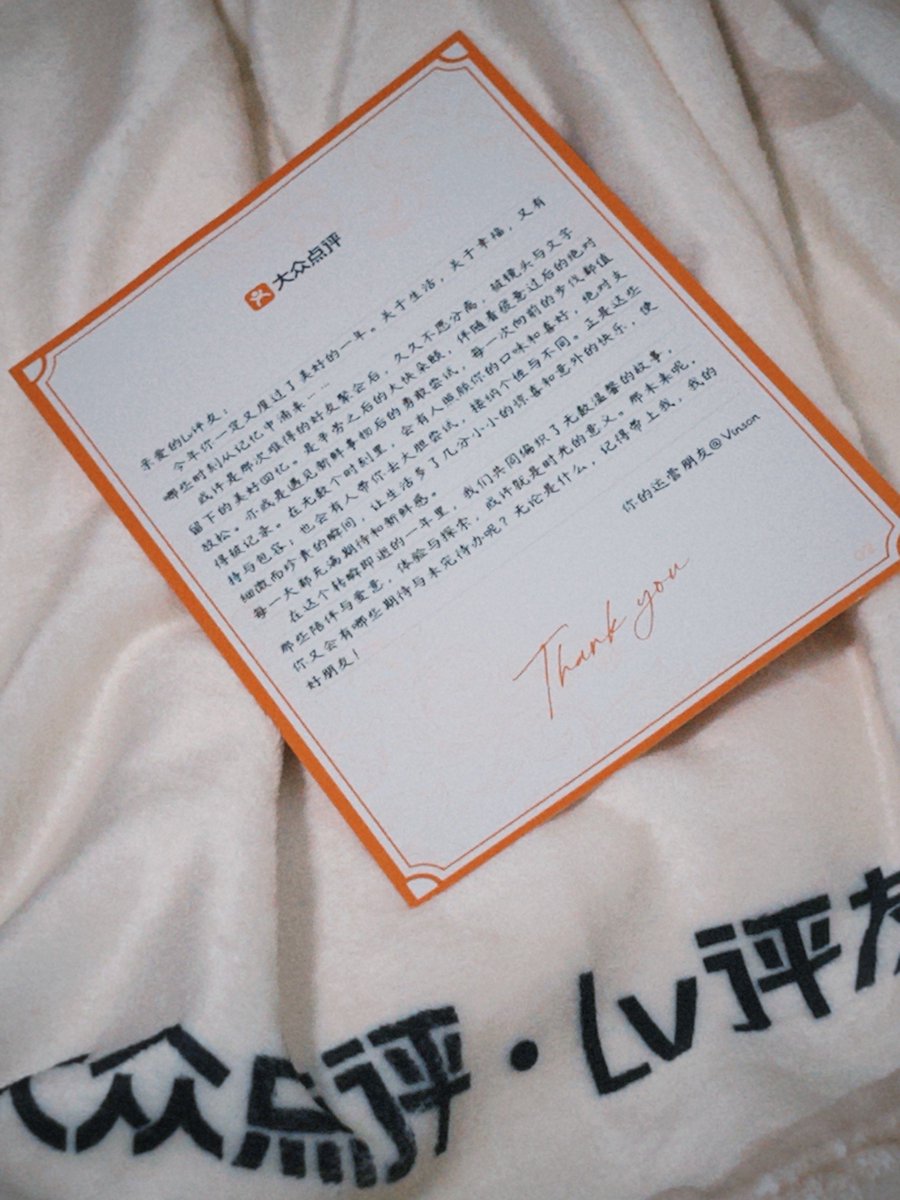 大众点评
亲爱的Lv评友：
今年你一定又度过了美好的一年。关于生活，关于幸福，又有
哪些时刻从记忆中涌来……
或许是那次难得的好友聚会后，久久不愿分离，被镜头与文字
留下的美好回忆。是辛劳之后的大快朵颐，伴随着疲惫过后的绝对
放松。亦或是遇见新鲜事物后的勇敢尝试，每一次向前的步伐都值
得被记录。在无数个时刻里，会有人照顾你的口味和喜好，绝对支
持与包容；也会有人带你去大胆尝试，接纳个性与不同。正是这些
细微而珍贵的瞬间，让生活多了几分小小的惊喜和意外的快乐，使
每一天都充满期待和新鲜感。
在这个转瞬即逝的一年里，我们共同编织了无数温馨的故事，
那些陪伴与爱意，体验与探索，或许就是时光的意义。那未来呢，
你又会有哪些期待与未完待办呢？无论是什么，记得带上我，我的
好朋友！
你的运营朋友@Vinson
Thank you
大众点评·Lv评友